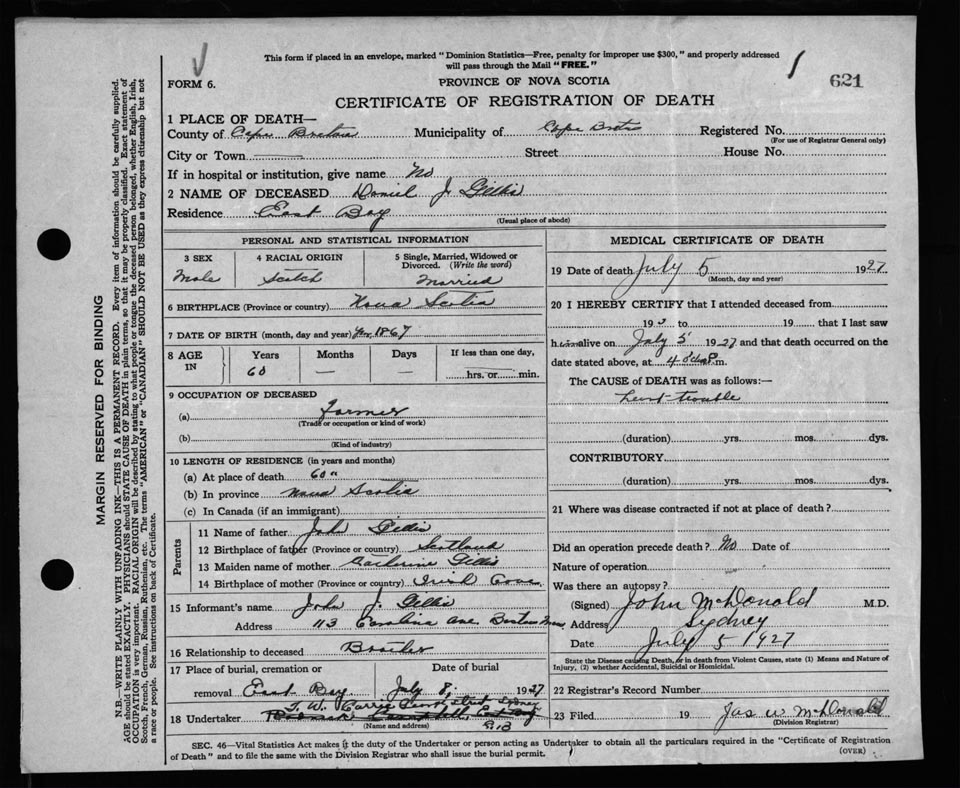 This form if placed in an envelope, marked "Dominion Statistics—Free, penalty for improper use $300," and properly addressed
will pass through the Mail "FREE."
621
FORM 6.
PROVINCE OF NOVA SCOTIA
CERTIFICATE OF REGISTRATION OF DEATH
1 PLACE OF DEATH—
County of Cape Breton Municipality of Cape Breton Registered No.
(For use of Registrar General only)
City or Town Street House No.
If in hospital or institution, give name No
2 NAME OF DECEASED Daniel J. Gillis
Residence East Bay
(Usual place of abode)
PERSONAL AND STATISTICAL INFORMATION
3 SEX 4 RACIAL ORIGIN 5 Single, Married, Widowed or
Divorced. (Write the word)
Male Scotch Married
6 BIRTHPLACE (Province or country) Nova Scotia
7 DATE OF BIRTH (month, day and year) 1867
8 AGE IN Years Months Days If less than one day,
60 — — hrs. or min.
9 OCCUPATION OF DECEASED
(a) Farmer
(Trade or occupation or kind of work)
(b)
(Kind of industry)
10 LENGTH OF RESIDENCE (in years and months)
(a) At place of death 60
(b) In province Nova Scotia
(c) In Canada (if an immigrant)
Parents
11 Name of father John Gillis
12 Birthplace of father (Province or country) Scotland
13 Maiden name of mother Catherine Gillis
14 Birthplace of mother (Province or country) Irish Cove
15 Informant's name John J. Gillis
Address 113 Carolina Ave Boston Mass
16 Relationship to deceased Brother
17 Place of burial, cremation or Date of burial
removal East Bay July 8, 1927
T. W. Sydney
18 Undertaker
(Name and address)
MEDICAL CERTIFICATE OF DEATH
19 Date of death July 5 1927
(Month, day and year)
20 I HEREBY CERTIFY that I attended deceased from
192 to 19 that I last saw
him alive on July 5 1927 and that death occurred on the
date stated above, at 4 m.
The CAUSE of DEATH was as follows:—
Heart trouble
(duration) yrs. mos. dys.
CONTRIBUTORY
(duration) yrs. mos. dys.
21 Where was disease contracted if not at place of death?
Did an operation precede death? No Date of
Nature of operation
Was there an autopsy?
(Signed) John McDonald M.D.
Address Sydney
Date July 5 1927
State the Disease causing Death, or in death from Violent Causes, state (1) Means and Nature of
Injury, (2) whether Accidental, Suicidal or Homicidal.
22 Registrar's Record Number
23 Filed 19 Jas W McDonald
(Division Registrar)
SEC. 46—Vital Statistics Act makes it the duty of the Undertaker or person acting as Undertaker to obtain all the particulars required in the "Certificate of Registration
of Death" and to file the same with the Division Registrar who shall issue the burial permit.
(OVER)
MARGIN RESERVED FOR BINDING
N.B.—WRITE PLAINLY WITH UNFADING INK—THIS IS A PERMANENT RECORD. Every item of information should be carefully supplied.
AGE should be stated EXACTLY. PHYSICIANS should STATE CAUSE OF DEATH in plain terms, so that it may be properly classified. Exact statement of
OCCUPATION is very important. RACIAL ORIGIN will be described by stating to what people or tongue the deceased person belonged, whether English, Irish,
Scotch, French, German, Russian, Ruthenian, etc. The terms "AMERICAN" or "CANADIAN" SHOULD NOT BE USED as they express citizenship but not
a race or people. See instructions on back of Certificate.